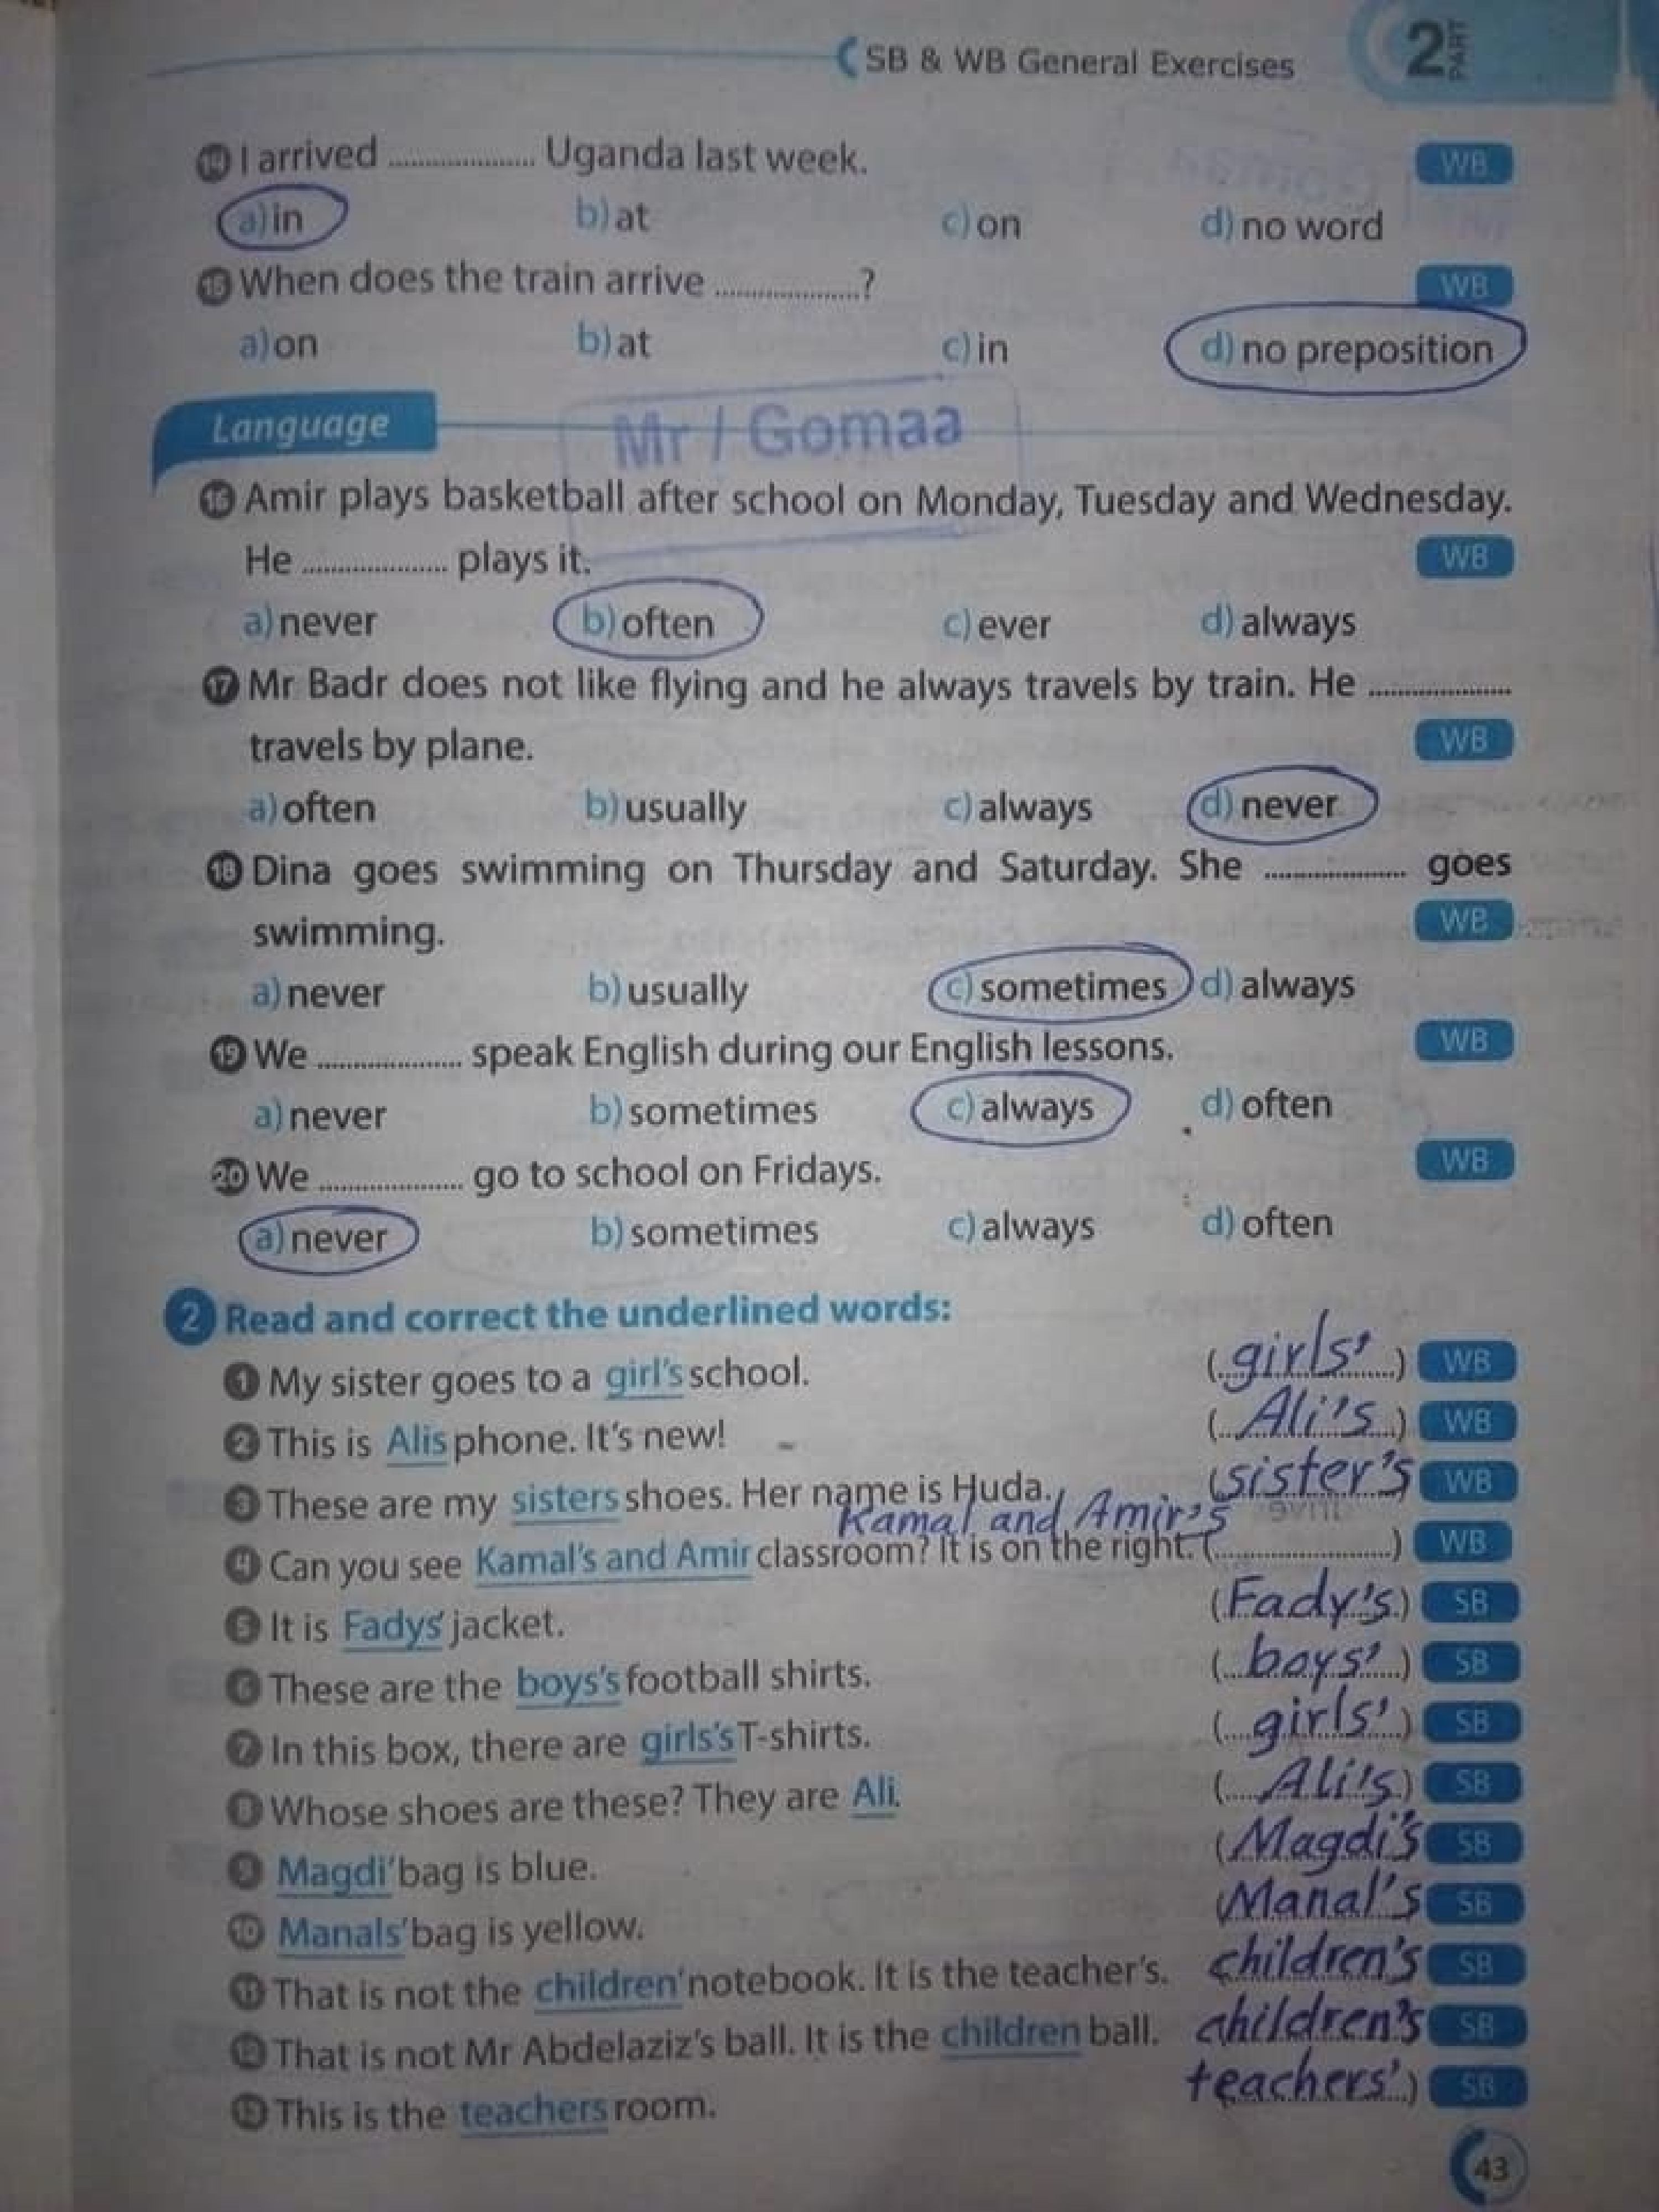 SB & WB General Exercises 2 PART
14 I arrived .................... Uganda last week. WB
a) in b) at c) on d) no word
15 When does the train arrive ....................? WB
a) on b) at c) in d) no preposition
Language
Mr / Gomaa
16 Amir plays basketball after school on Monday, Tuesday and Wednesday.
He .................... plays it. WB
a) never b) often c) ever d) always
17 Mr Badr does not like flying and he always travels by train. He ....................
travels by plane. WB
a) often b) usually c) always d) never
18 Dina goes swimming on Thursday and Saturday. She .................... goes
swimming. WB
a) never b) usually c) sometimes d) always
19 We .................... speak English during our English lessons. WB
a) never b) sometimes c) always d) often
20 We .................... go to school on Fridays. WB
a) never b) sometimes c) always d) often
2 Read and correct the underlined words:
1 My sister goes to a girl's school. (girls') WB
2 This is Alis phone. It's new! (Ali's) WB
3 These are my sisters shoes. Her name is Huda. (sister's) WB
Kamal and Amir's
4 Can you see Kamal's and Amir classroom? It is on the right. (....................) WB
5 It is Fadys' jacket. (Fady's) SB
6 These are the boys's football shirts. (boys') SB
7 In this box, there are girls's T-shirts. (girls') SB
8 Whose shoes are these? They are Ali. (Ali's) SB
9 Magdi' bag is blue. (Magdi's SB
10 Manals' bag is yellow. (Manal's SB
11 That is not the children' notebook. It is the teacher's. children's SB
12 That is not Mr Abdelaziz's ball. It is the children ball. children's SB
13 This is the teachers room. teachers') SB
43